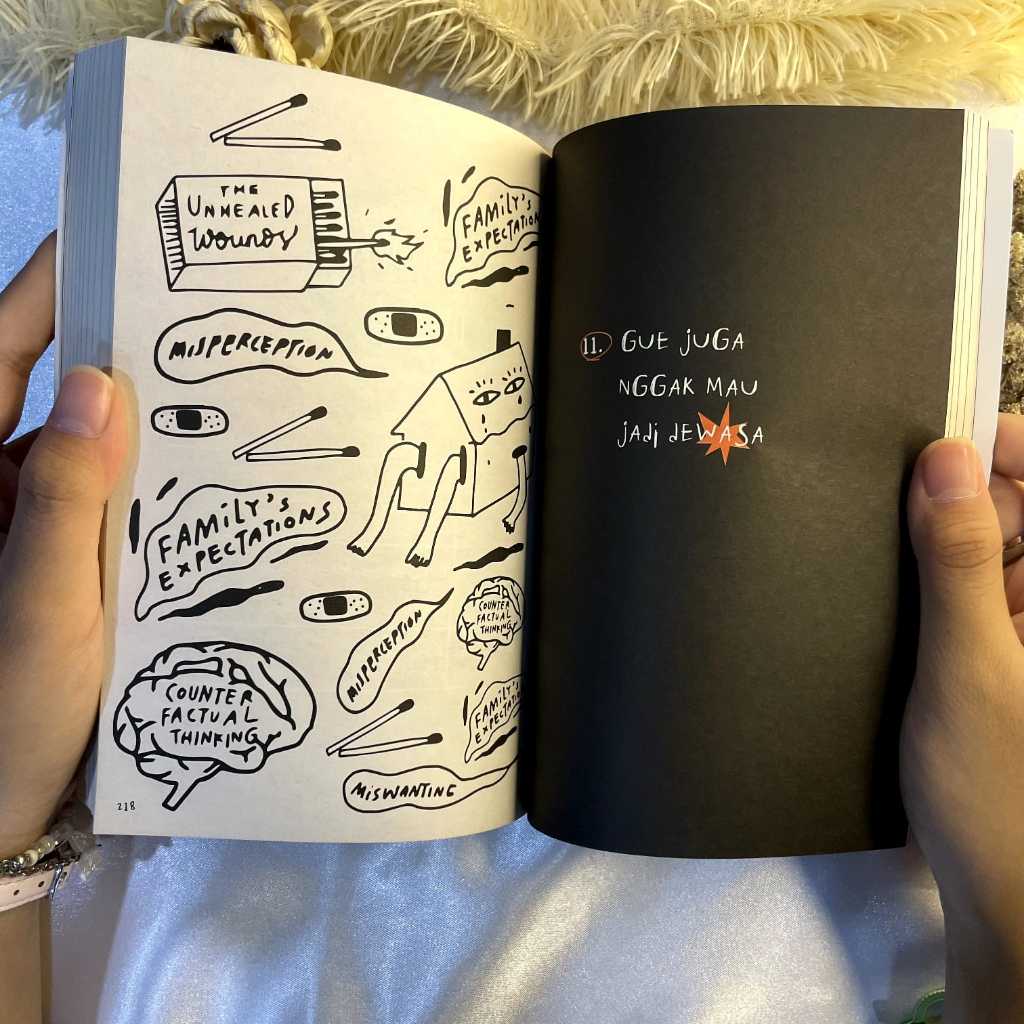 THE
UNHEALED
WOUNDS
FAMILY'S
EXPECTATIONS
MISPERCEPTION
FAMILY'S
EXPECTATIONS
COUNTER
FACTUAL
THINKING
MISPERCEPTION
COUNTER
FACTUAL
THINKING
FAMILY'S
EXPECTATIONS
MISWANTING
218
11. GUE JUGA
NGGAK MAU
JADI DEWASA